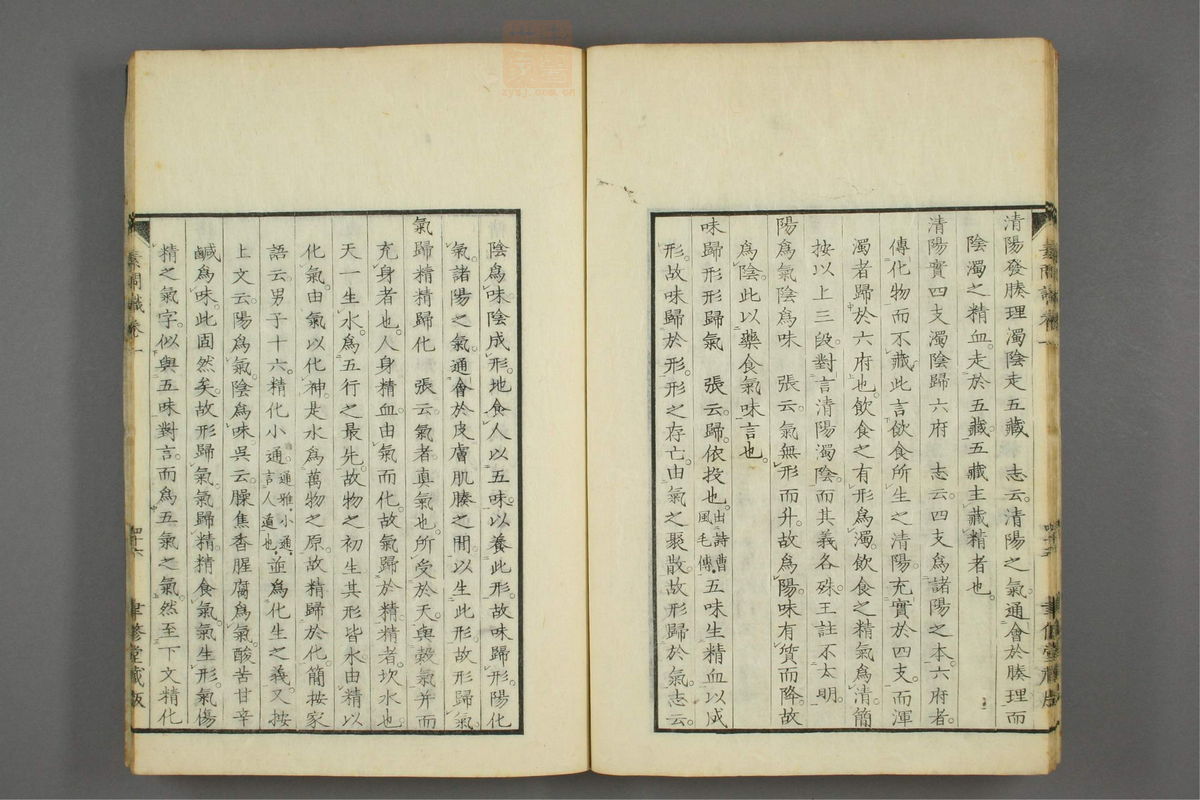 清陽發腠理濁陰走五藏　志云。清陽之氣。通會於腠理。而
陰濁之精血。走於五藏。五藏主藏精者也。
清陽實四支濁陰歸六府　志云。四支爲諸陽之本。六府者。
傳化物而不藏。此言飲食所生之清陽。充實於四支。而渾
濁者歸於六府也。飲食之有形爲濁。飲食之精氣爲清。簡
按以上三段。對言清陽濁陰。而其義各殊。王註不太明。
陽爲氣陰爲味　張云。氣無形而升。故爲陽。味有質而降。故
爲陰。此以藥食氣味言也。
味歸形形歸氣　張云。歸。依投也。出詩曹風毛傳五味生精血以成
形。故味歸於形。形之存亡。由氣之聚散。故形歸於氣。志云。
陰爲味。陰成形。地食人以五味。以養此形。故味歸形。陽化
氣。諸陽之氣。通會於皮膚肌腠之間。以生此形。故形歸氣。
氣歸精精歸化　張云。氣者。眞氣也。所受於天。與穀氣并而
充身者也。人身精血。由氣而化。故氣歸於精。精者。坎水也。
天一生水。爲五行之最先。故物之初生。其形皆水。由精以
化氣。由氣以化神。是水爲萬物之原。故精歸於化。簡按家
語云。男子十六。精化小通。通雅。小通。言人道也。並爲化生之義。又按
上文云。陽爲氣。陰爲味。吳云。臊焦香腥腐爲氣。酸苦甘辛
鹹爲味。此固然矣。故形歸氣。氣歸精。精食氣。氣生形。氣傷
精之氣字。似與五味對言。而爲五氣之氣。然至下文精化
素問識卷一
聿修堂藏版